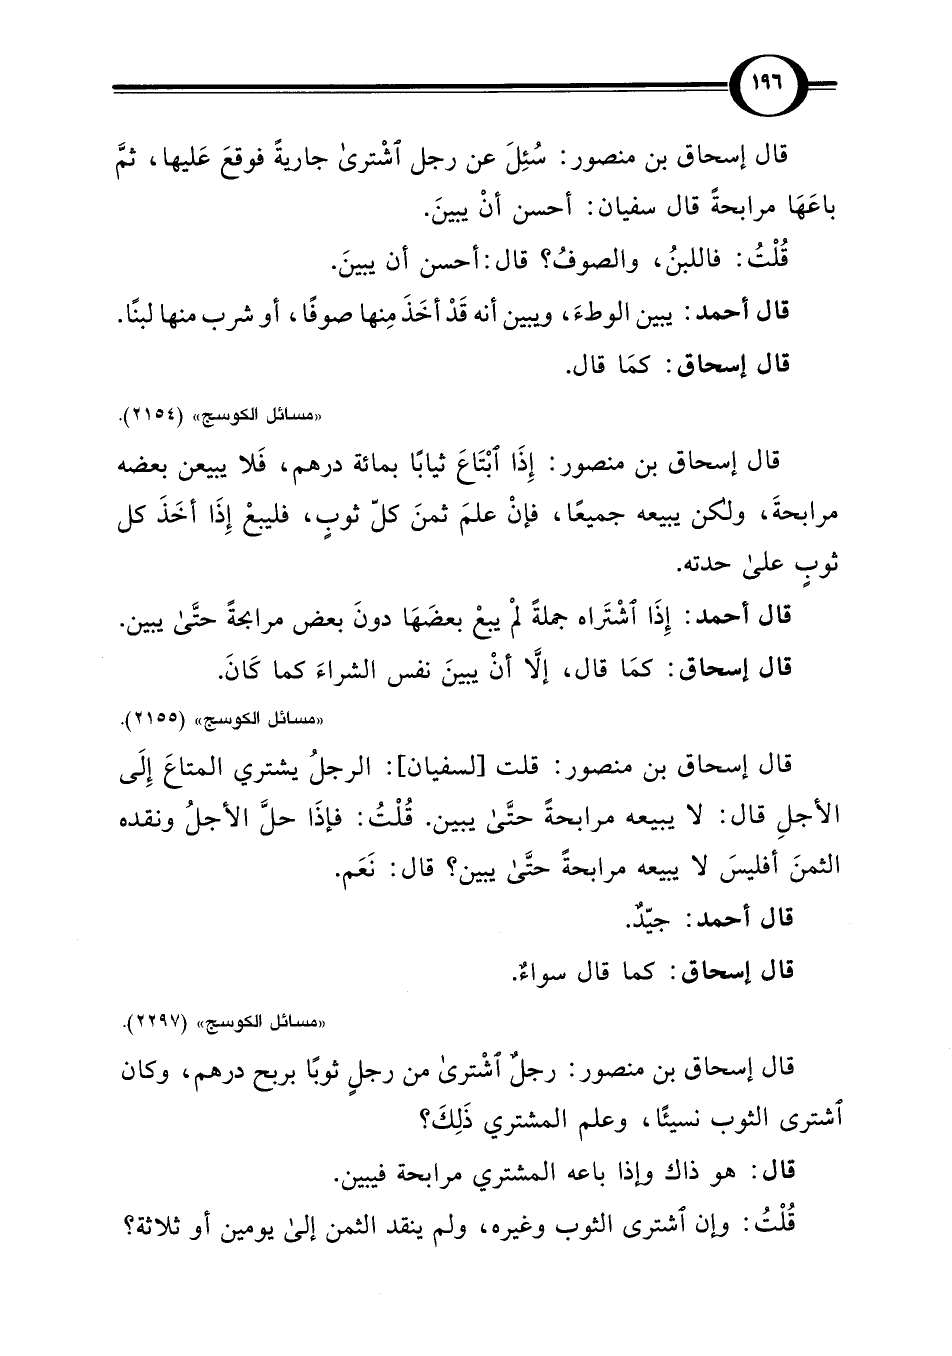 ١٩٦
قال إسحاق بن منصور: سُئِلَ عن رجل ٱشْترىٰ جاريةً فوقعَ عَليها، ثمَّ
باعَهَا مرابحةً قال سفيان: أحسن أنْ يبينَ.
قُلْتُ: فاللبنُ، والصوفُ؟ قال: أحسن أن يبينَ.
قال أحمد: يبين الوطءَ، ويبين أنه قَدْ أخَذَ مِنها صوفًا، أو شرب منها لبنًا.
قال إسحاق: كمَا قال.
«مسائل الكوسج» (٢١٥٤).
قال إسحاق بن منصور: إِذَا ٱبْتَاعَ ثيابًا بمائة درهم، فَلا يبيعن بعضه
مرابحةَ، ولكن يبيعه جميعًا، فإنْ علمَ ثمنَ كلّ ثوبٍ، فليبعْ إِذَا أخَذَ كل
ثوبٍ علىٰ حدته.
قال أحمد: إِذَا ٱشْتَراه جملةً لْم يبعْ بعضَهَا دونَ بعض مرابحةً حتَّىٰ يبين.
قال إسحاق: كمَا قال، إلَّا أنْ يبينَ نفس الشراءَ كما كَانَ.
«مسائل الكوسج» (٢١٥٥).
قال إسحاق بن منصور: قلت [لسفيان]: الرجلُ يشتري المتاعَ إِلَى
الأجلِ قال: لا يبيعه مرابحةً حتَّىٰ يبين. قُلْتُ: فإذَا حلَّ الأجلُ ونقده
الثمنَ أفليسَ لا يبيعه مرابحةً حتَّىٰ يبين؟ قال: نَعَم.
قال أحمد: جيّدٌ.
قال إسحاق: كما قال سواءٌ.
«مسائل الكوسج» (٢٢٩٧).
قال إسحاق بن منصور: رجلٌ ٱشْترىٰ من رجلٍ ثوبًا بربح درهم، وكان
ٱشترى الثوب نسيئًا، وعلم المشتري ذَلِكَ؟
قال: هو ذاك وإذا باعه المشتري مرابحة فيبين.
قُلْتُ: وإن ٱشترى الثوب وغيره، ولم ينقد الثمن إلىٰ يومين أو ثلاثة؟